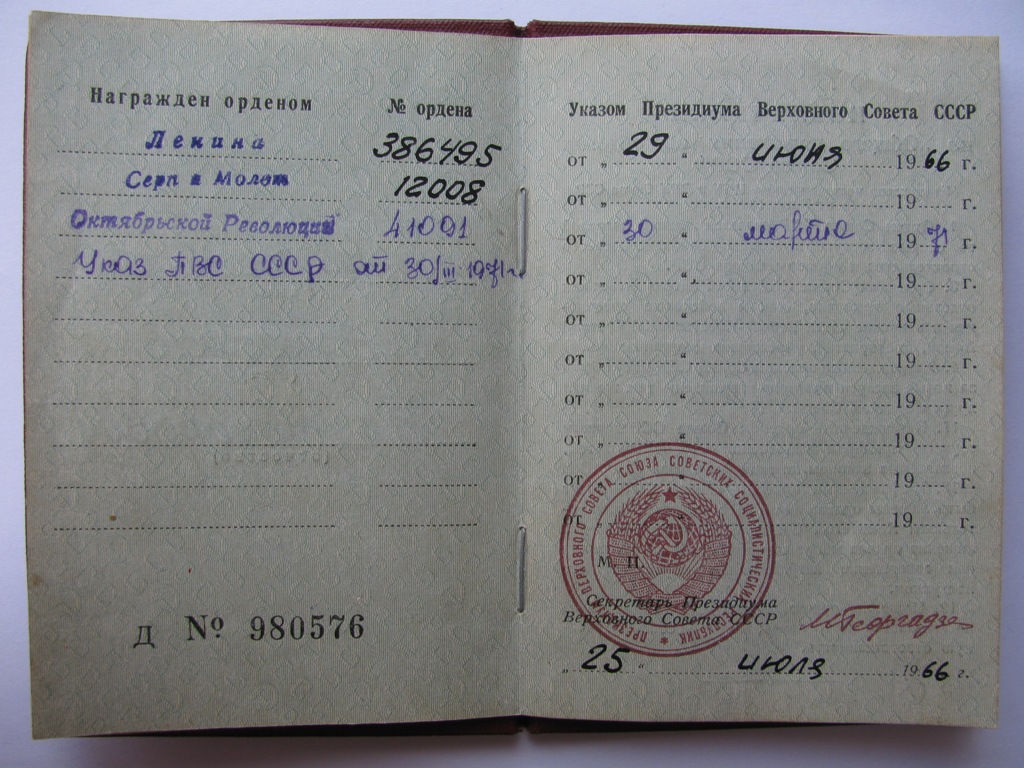 Награжден орденом № ордена
Ленина 386495
Серп и Молот 12008
Октябрьской Революции 41091
Указ ПВС СССР от 30/III 1971 г.
Д № 980576
Указом Президиума Верховного Совета СССР
от „ 29 “ июня 1966 г.
от „ “ 19 г.
от „ 30 “ марта 1971 г.
от „ “ 19 г.
от „ “ 19 г.
от „ “ 19 г.
от „ “ 19 г.
от „ “ 19 г.
от „ “ 19 г.
от „ “ 19 г.
ПРЕЗИДИУМ ВЕРХОВНОГО СОВЕТА СОЮЗА СОВЕТСКИХ СОЦИАЛИСТИЧЕСКИХ РЕСПУБЛИК
М. П.
Секретарь Президиума
Верховного Совета СССР МГеоргадзе
„ 25 “ июля 1966 г.